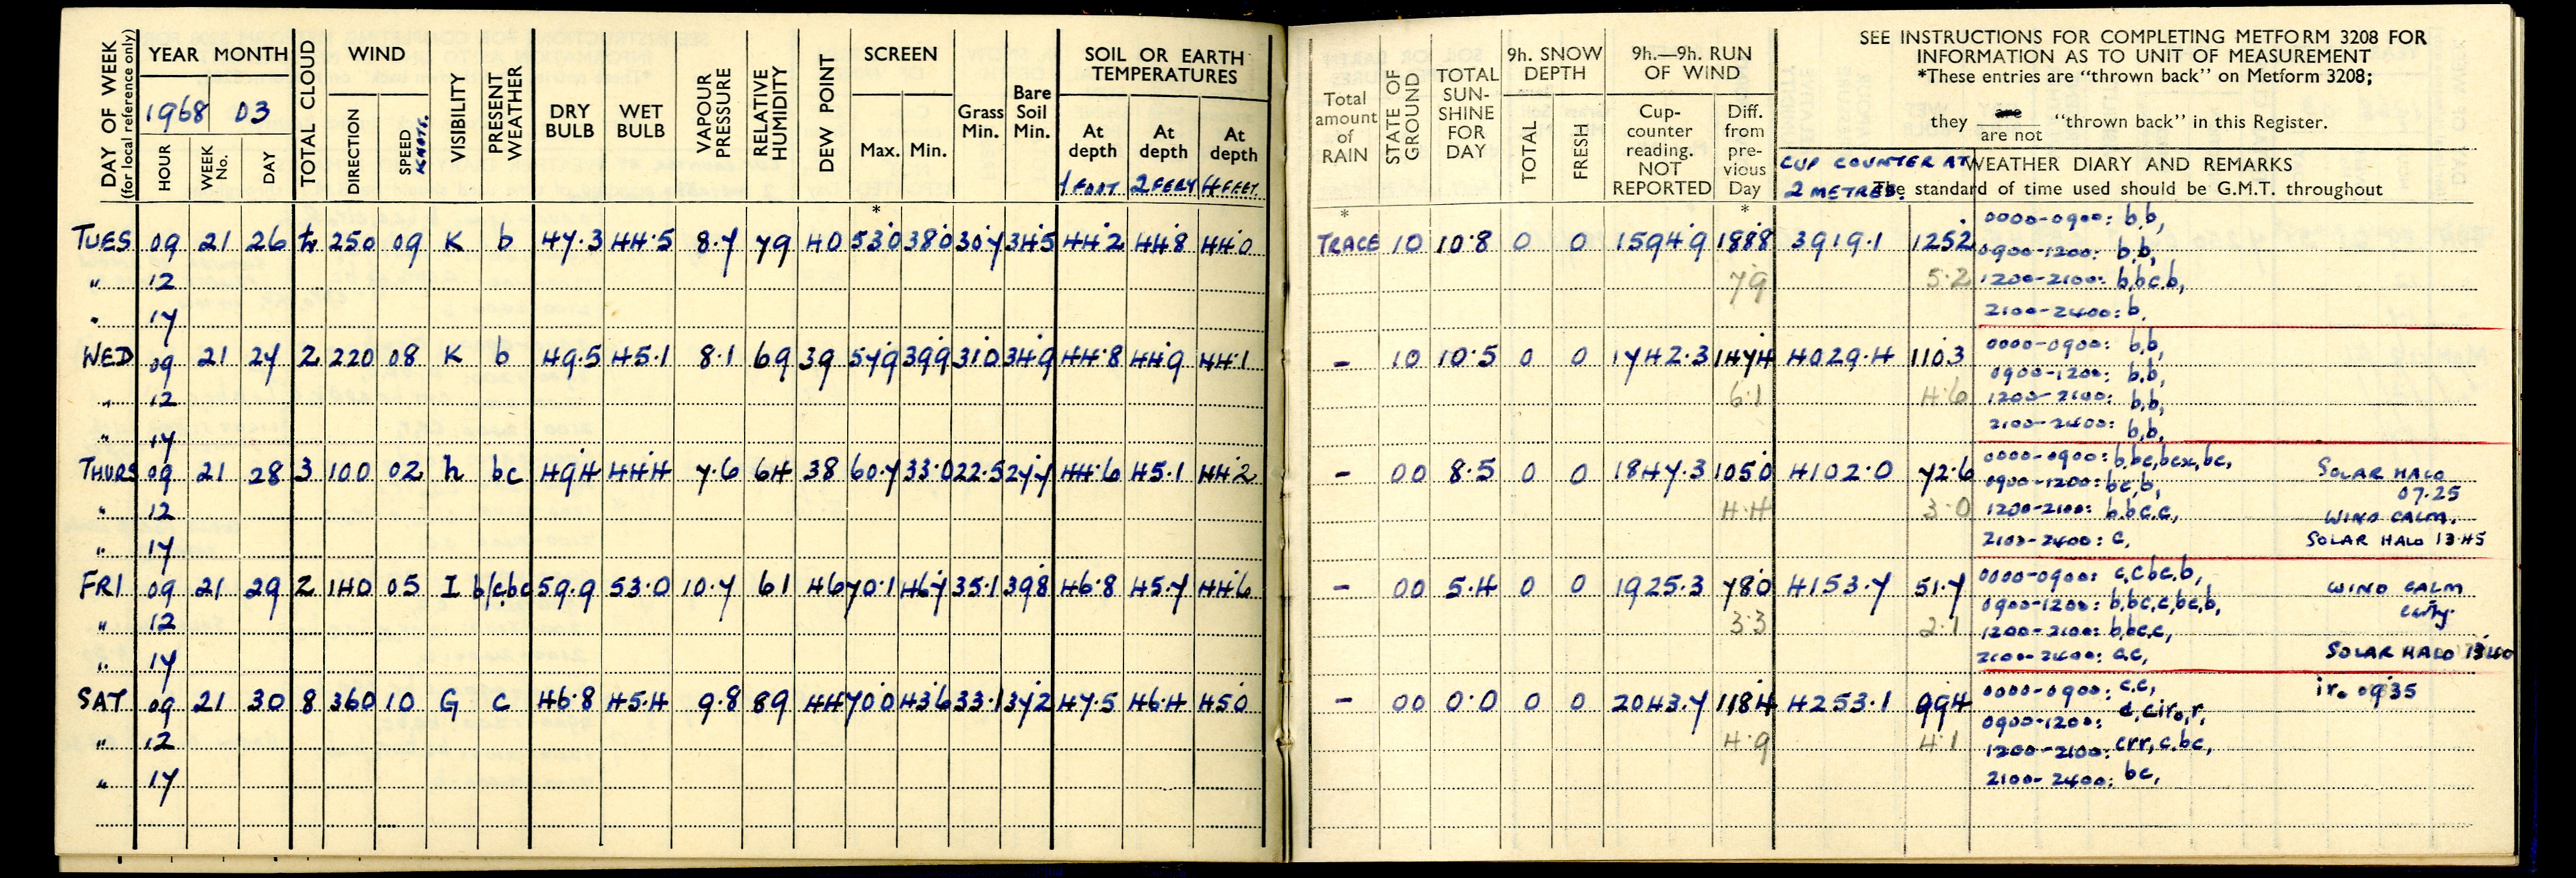 DAY OF WEEK (for local reference only)
YEAR MONTH
1968 03
HOUR
WEEK No.
DAY
TOTAL CLOUD
WIND
DIRECTION
SPEED KNOTS.
VISIBILITY
PRESENT WEATHER
DRY BULB
WET BULB
VAPOUR PRESSURE
RELATIVE HUMIDITY
DEW POINT
SCREEN
Max. Min.
Grass Min.
Bare Soil Min.
SOIL OR EARTH TEMPERATURES
At depth 1 FOOT
At depth 2 FEET
At depth 4 FEET.
Total amount of RAIN
STATE OF GROUND
TOTAL SUN-SHINE FOR DAY
9h. SNOW DEPTH
TOTAL
FRESH
9h.—9h. RUN OF WIND
Cup-counter reading. NOT REPORTED
Diff. from pre-vious Day
SEE INSTRUCTIONS FOR COMPLETING METFORM 3208 FOR
INFORMATION AS TO UNIT OF MEASUREMENT
*These entries are "thrown back" on Metform 3208;
they are / are not "thrown back" in this Register.
CUP COUNTER AT 2 METRES.
WEATHER DIARY AND REMARKS
The standard of time used should be G.M.T. throughout
* * *
TUES 09 21 26 250 09 K b 47.3 44.5 8.7 79 40 53.0 38.0 30.7 34.5 44.2 44.8 44.0 TRACE 10 10.8 0 0 1594.9 188.8 3919.1 125.2 0000-0900: b,b,
0900-1200: b,b,
" 12 7.9 5.2 1200-2100: b,bc,b,
" 17 2100-2400: b,
WED 09 21 27 2 220 08 K b 49.5 45.1 8.1 69 39 57.9 39.9 31.0 34.9 44.8 44.9 44.1 - 10 10.5 0 0 1742.3 147.4 4029.4 110.3 0000-0900: b,b,
0900-1200: b,b,
" 12 6.1 4.6 1200-2100: b,b,
" 17 2100-2400: b,b,
THURS 09 21 28 3 100 02 h bc 49.4 44.4 7.6 64 38 60.7 33.0 22.5 27.7 44.6 45.1 44.2 - 00 8.5 0 0 1847.3 105.0 4102.0 72.6 0000-0900: b,bc,bcx,bc, SOLAR HALO
0900-1200: bc,b, 07.25
" 12 4.4 3.0 1200-2100: b,bc,c, WIND CALM.
" 17 2100-2400: c, SOLAR HALO 13.45
FRI 09 21 29 2 140 05 I b/c,bc 59.9 53.0 10.7 61 46 70.1 46.7 35.1 39.8 46.8 45.7 44.6 - 00 5.4 0 0 1925.3 78.0 4153.7 51.7 0000-0900: c,c,bc,b, WIND CALM
0900-1200: b,bc,c,bc,b, early.
" 12 3.3 2.1 1200-2100: b,bc,c,
" 17 2100-2400: c,c, SOLAR HALO
SAT 09 21 30 8 360 10 G c 46.8 45.4 9.8 89 44 70.0 43.6 33.1 37.2 47.5 46.4 45.0 - 00 0.0 0 0 2043.7 118.4 4253.1 99.4 0000-0900: c,c, iro 0935
0900-1200: d,ciro,r,
" 12 4.9 4.1 1200-2100: crr,c,bc,
" 17 2100-2400: bc,